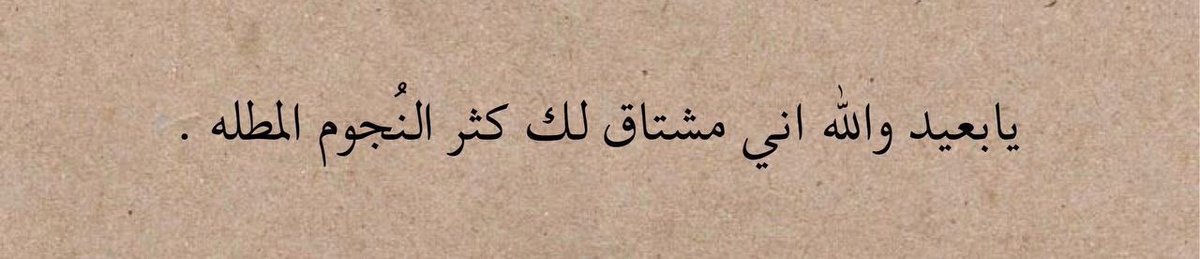 يابعيد والله اني مشتاق لك كثر النُجوم المطله .